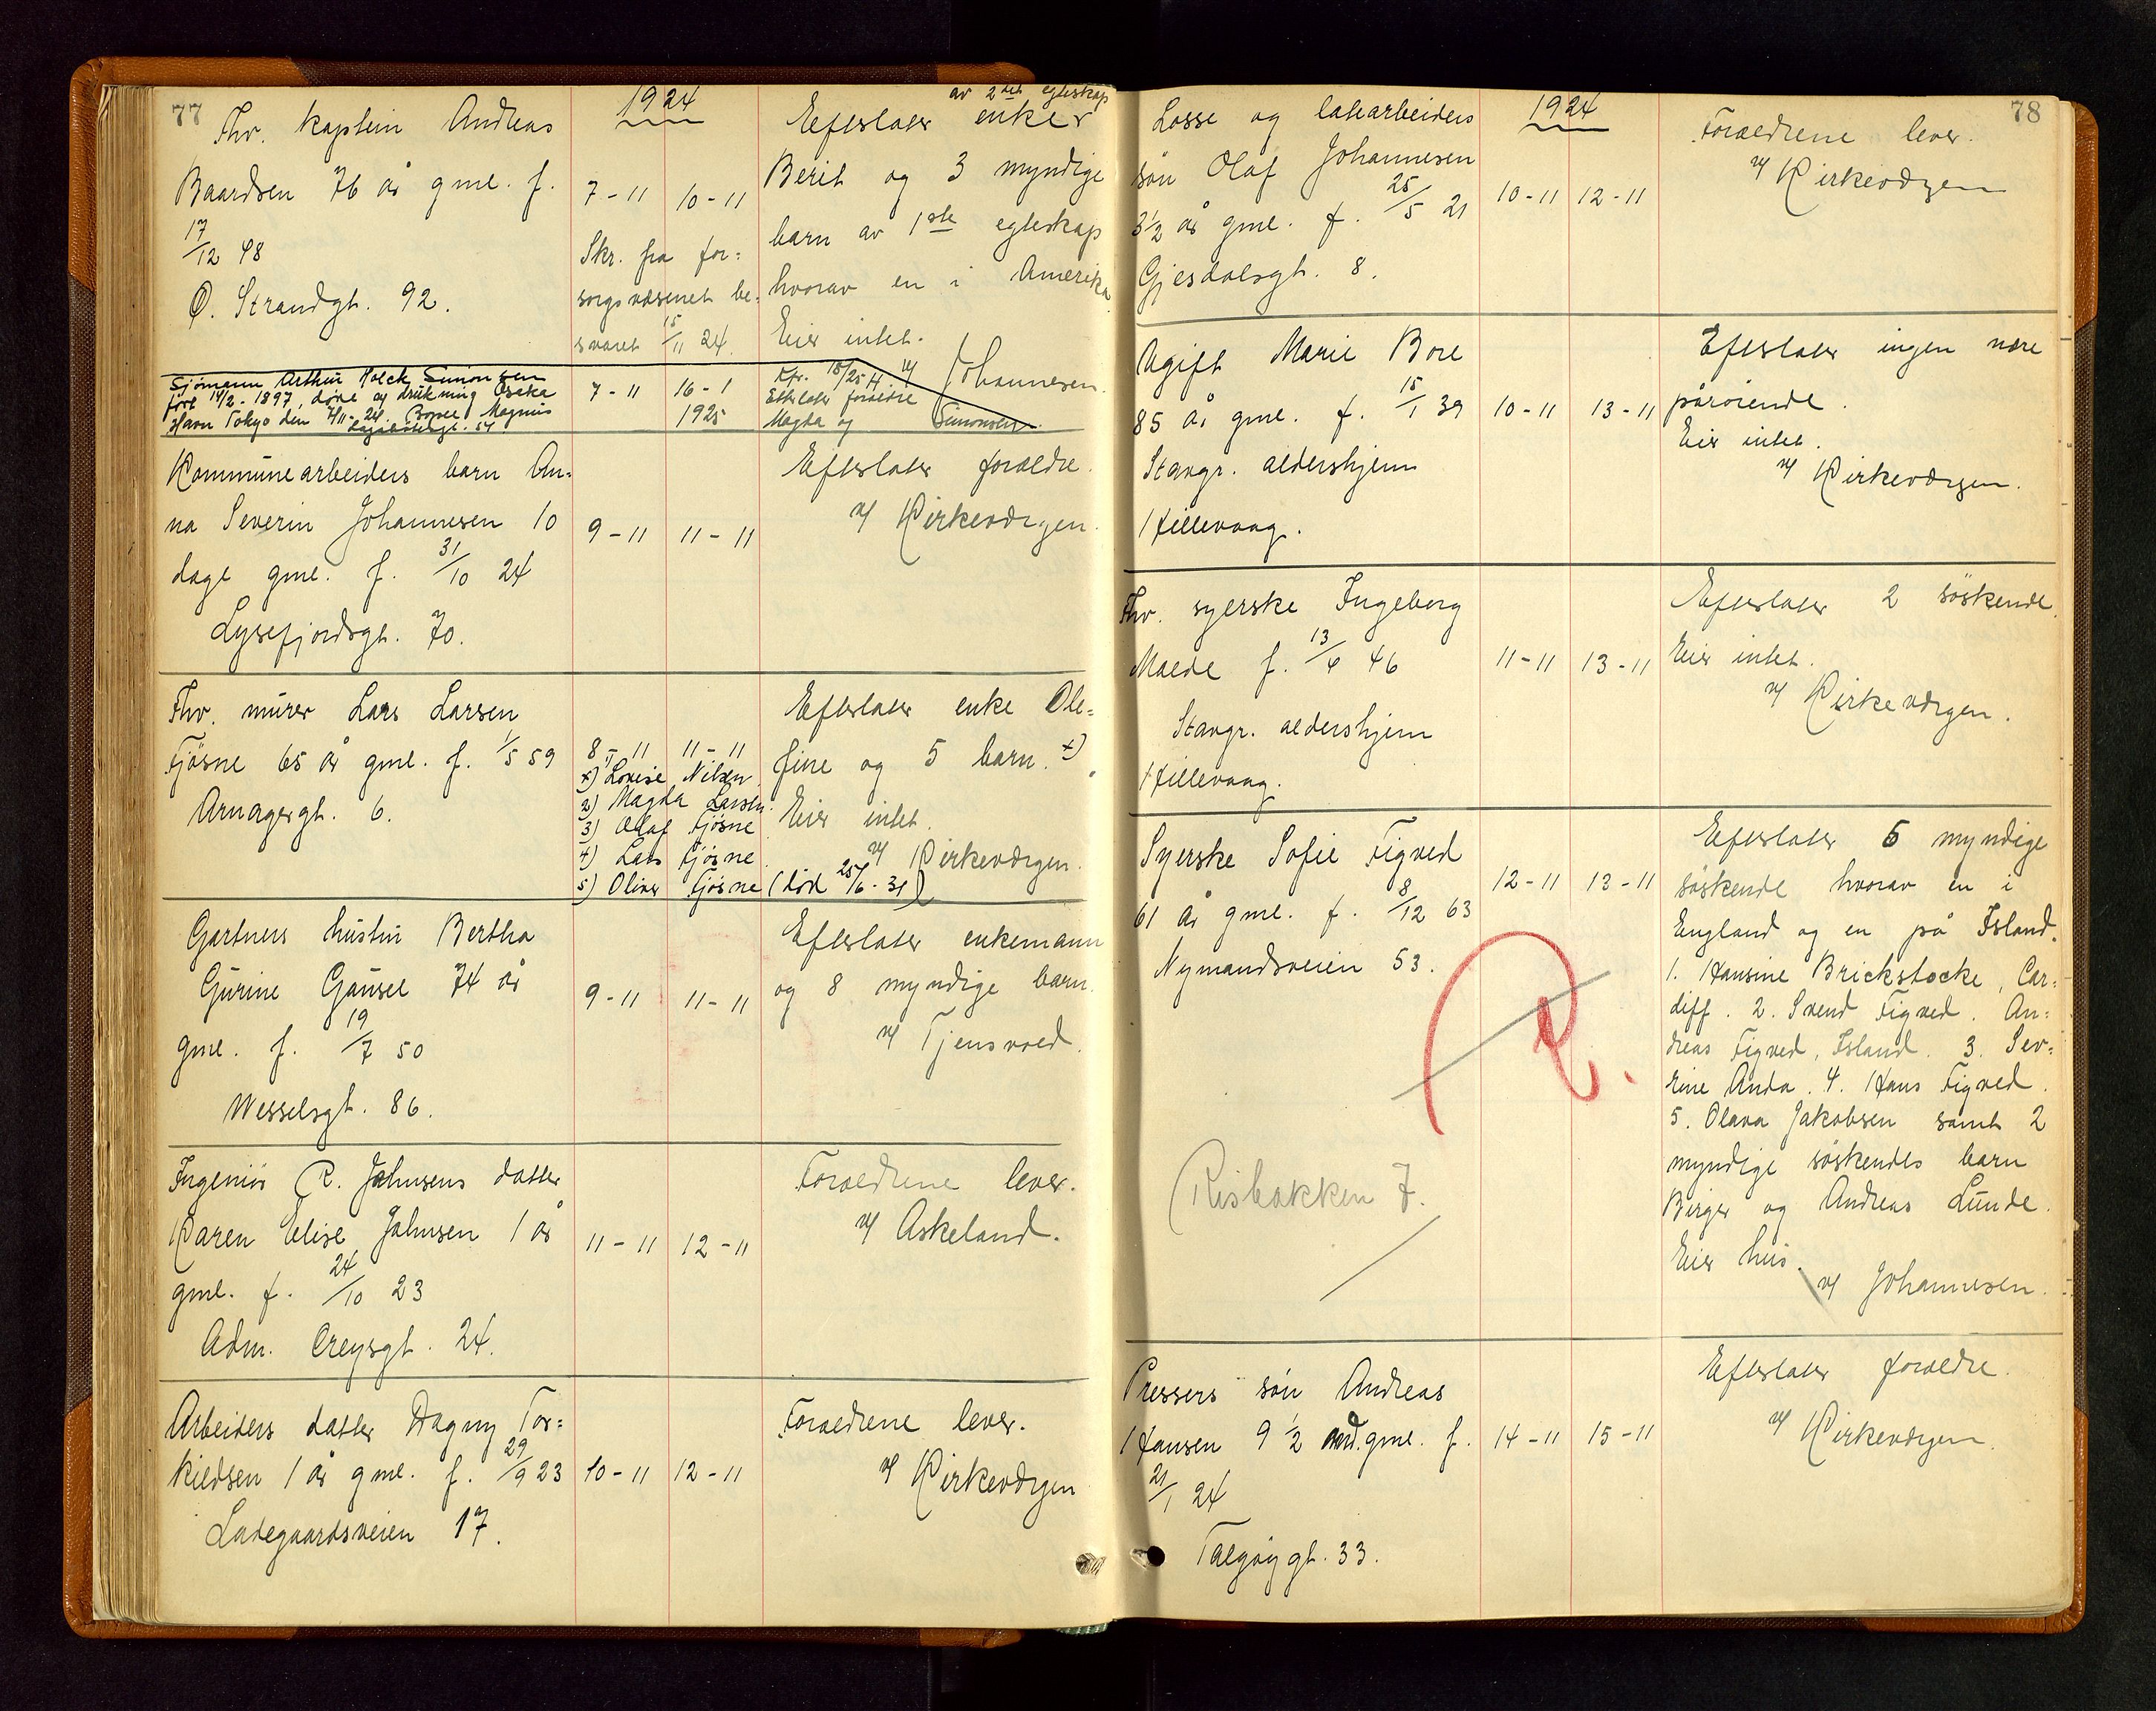 77
1924
Fhv. kaptein Andreas
Baardsen 76 år gml. f.
17/12 48
Ø. Strandgt. 92.
7-11 10-11
Skr. fra for=
sorgsvæsenet be=
svaret 15/11 24.
av 2det egteskap
Efterlater enke
Berit og 3 myndige
barn av 1ste egteskap
hvorav en i Amerika.
Eier intet.
v/ Johannesen.
Sjømann Arthur Holck Simonsen
født 14/2-1897, døde av drukning Osaka
Havn Tokyo den 7/11-24.
7-11 16-1
1925
Efterlater foreldre
Magda og Simonsen.
Kommunearbeiders barn An=
na Severin Johannesen 10
dage gml. f. 31/10 24
Lysefjordsgt. 70.
9-11 11-11
Efterlater forældre.
v/ Kirkeværgen.
Fhv. murer Lars Larsen
Fjøsne 65 år gml. f. 1/5 59
Arnagergt. 6.
8-11 11-11
x) Lovise Nilsen
2) Magda Larsen.
3) Olaf Fjøsne
4) Lars Fjøsne.
5) Oliver Fjøsne (død 25/6-31)
Efterlater enke Ole=
fine og 5 barn. x)
Eier intet.
v/ Kirkeværgen.
Gartners hustru Bertha
Gurine Gausel 74 år
gml. f. 19/7 50
Wesselsgt. 86.
9-11 11-11
Efterlater enkemann
og 8 myndige barn.
v/ Tjensvold.
Ingeniør R. Johnsens datter
Karen Elise Johnsen 1 år
gml. f. 24/10 23
Adm. Creysgt. 24.
11-11 12-11
Forældrene lever.
v/ Askeland.
Arbeiders datter Dagny Tor=
kildsen 1 år gml. f. 29/9 23
Ladegaardsveien 17.
10-11 12-11
Forældrene lever.
v/ Kirkeværgen
78
1924
Losse og lastearbeiders
søn Olaf Johannesen
3½ år gml. f. 25/5 21
Gjesdalsgt. 8.
10-11 12-11
Forældrene lever.
v/ Kirkeværgen
Ugift Marie Bore
85 år gml. f. 15/1 39
Stavgr. aldershjem
Hillevaag.
10-11 13-11
Efterlater ingen nære
pårørende.
Eier intet.
v/ Kirkeværgen.
Fhv. syerske Ingeborg
Maele f. 13/4 46
Stavgr. aldershjem
Hillevaag.
11-11 13-11
Efterlater 2 søskende.
Eier intet.
v/ Kirkeværgen.
Syerske Sofie Figved
61 år gml. f. 8/12 63
Nymandsveien 53.
12-11 13-11
R.
Risbakken 7.
Efterlater 6 myndige
søskende hvorav en i
England og en på Island.
1. Hansine Brickstocke, Car=
diff. 2. Svend Figved. An=
dreas Figved, Island. 3. Sev=
rine Anda. 4. Hans Figved.
5. Olava Jakobsen samt 2
myndige søskendes barn
Birger og Andreas Lunde.
Eier hus.
v/ Johannesen.
Pressers søn Andreas
Hansen 9½ md. gml. f.
21/1 24
Talgøygt. 33.
14-11 15-11
Efterlater forældre.
v/ Kirkeværgen.